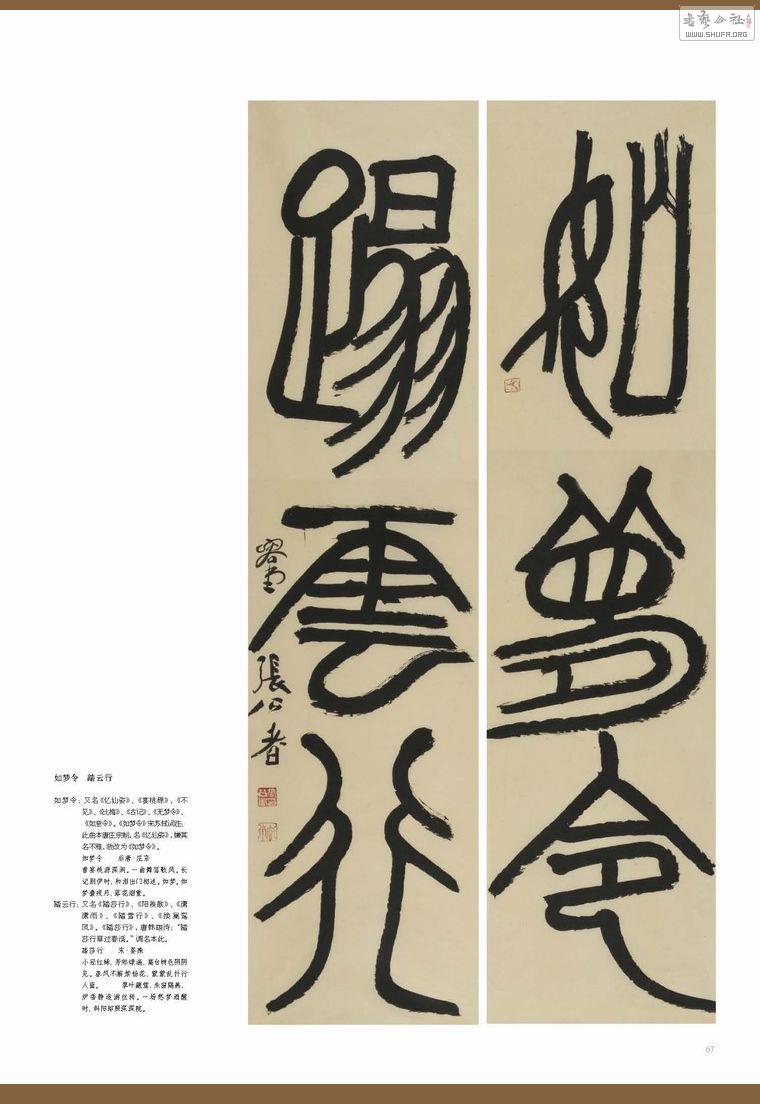 书艺公社
WWW.SHUFA.ORG
如夢令
踏雲行
張公者
如梦令 踏云行
如梦令：又名《忆仙姿》、《宴桃源》、《不
见》、《比梅》、《古记》、《无梦令》、
《如意令》。《如梦令》宋苏轼词注：
此曲本唐庄宗制，名《忆仙姿》，嫌其
名不雅，故改为《如梦令》。
如梦令 后唐·庄宗
曾宴桃源深洞。一曲舞鸾歌凤。长
记别伊时，和泪出门相送。如梦。如
梦。残月、落花烟重。
踏云行：又名《踏莎行》、《阳羡歌》、《潇
潇雨》、《踏雪行》、《
凤》。《踏莎行》，唐韩翃诗：“踏
莎行草过春溪。”调名本此。
踏莎行 宋·晏殊
小径红稀，芳郊绿遍，高台树色阴阴
见。春风不解禁杨花，蒙蒙乱扑行
人面。 翠叶藏莺，朱帘隔燕，
炉香静逐游丝转。一场愁梦酒醒
时，斜阳却照深深院。
67